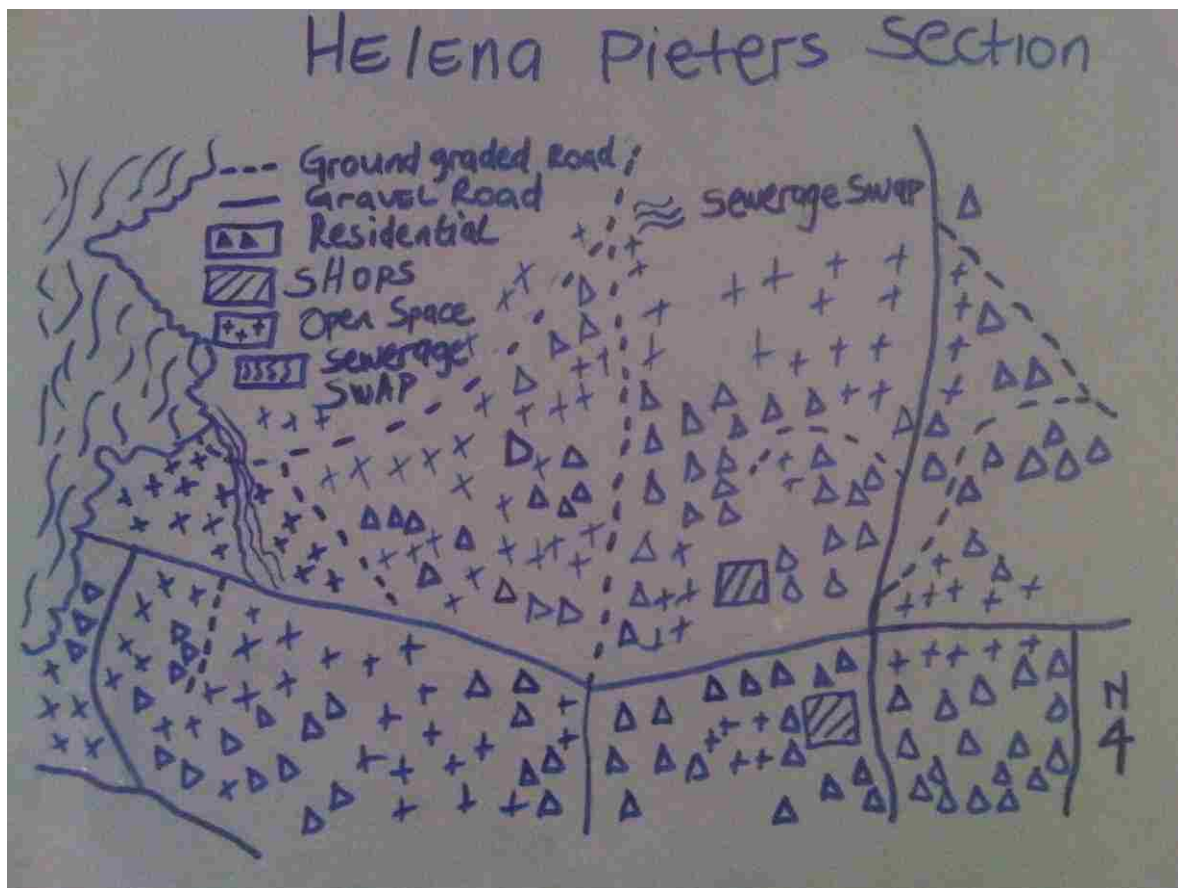 HElEna Pieters Section
Ground graded Road
GRAVEL Road
Residential
SHOPS
Open Space
sewerage
SWAP
sewerage Swap
N
4